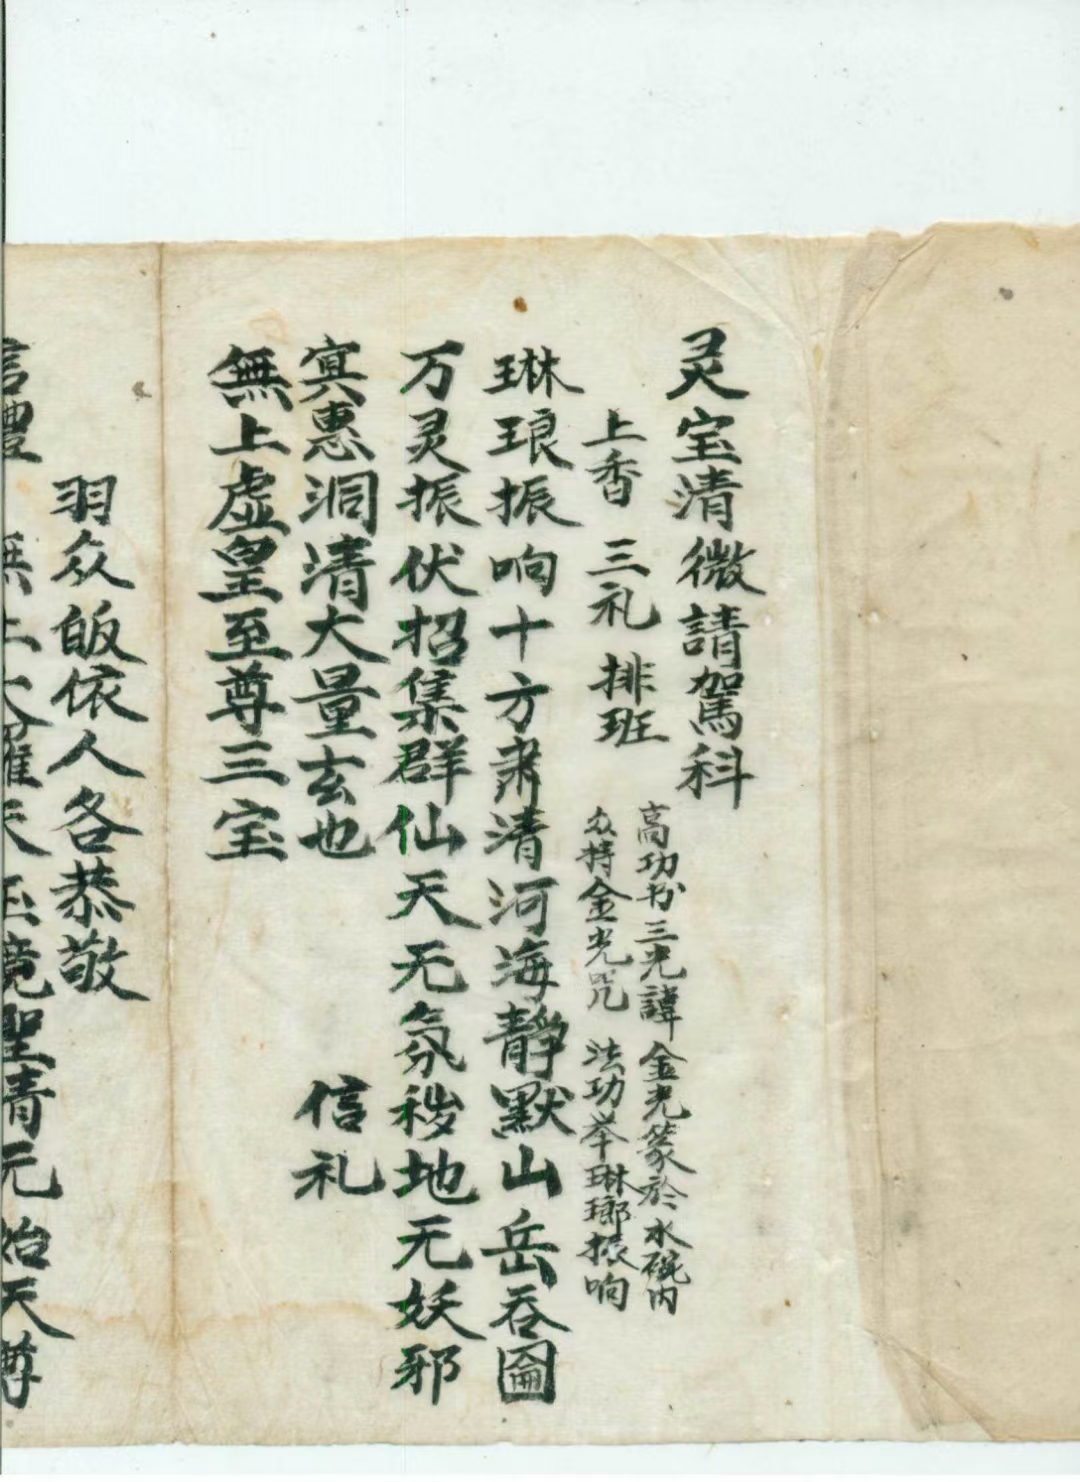 灵宝清微請駕科
上香 三礼 排班
高功书三光諱金光篆於水碗内
众持金光咒 法功举琳瑯振响
琳琅振响十方肃清河海靜默山岳吞圇
万灵振伏招集群仙天无氛秽地无妖邪
寘惠洞清大量玄也 信礼
無上虚皇至尊三宝
羽众皈依人各恭敬
信禮 無上大羅天玉境聖清元始天尊